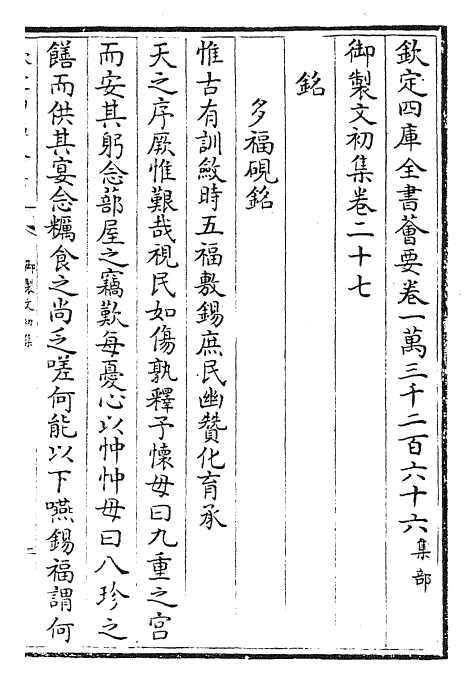 欽定四庫全書薈要卷一萬三千二百六十六集部
御製文初集卷二十七
銘
多福硯銘
惟古有訓斂時五福敷錫庶民幽贊化育承
天之序厥惟艱哉視民如傷孰釋予懷毋曰九重之宮
而安其躬念蔀屋之竊歎每憂心以忡忡毋曰八珍之
饍而供其宴念糲食之尚乏嗟何能以下嚥錫福謂何
御製文初集